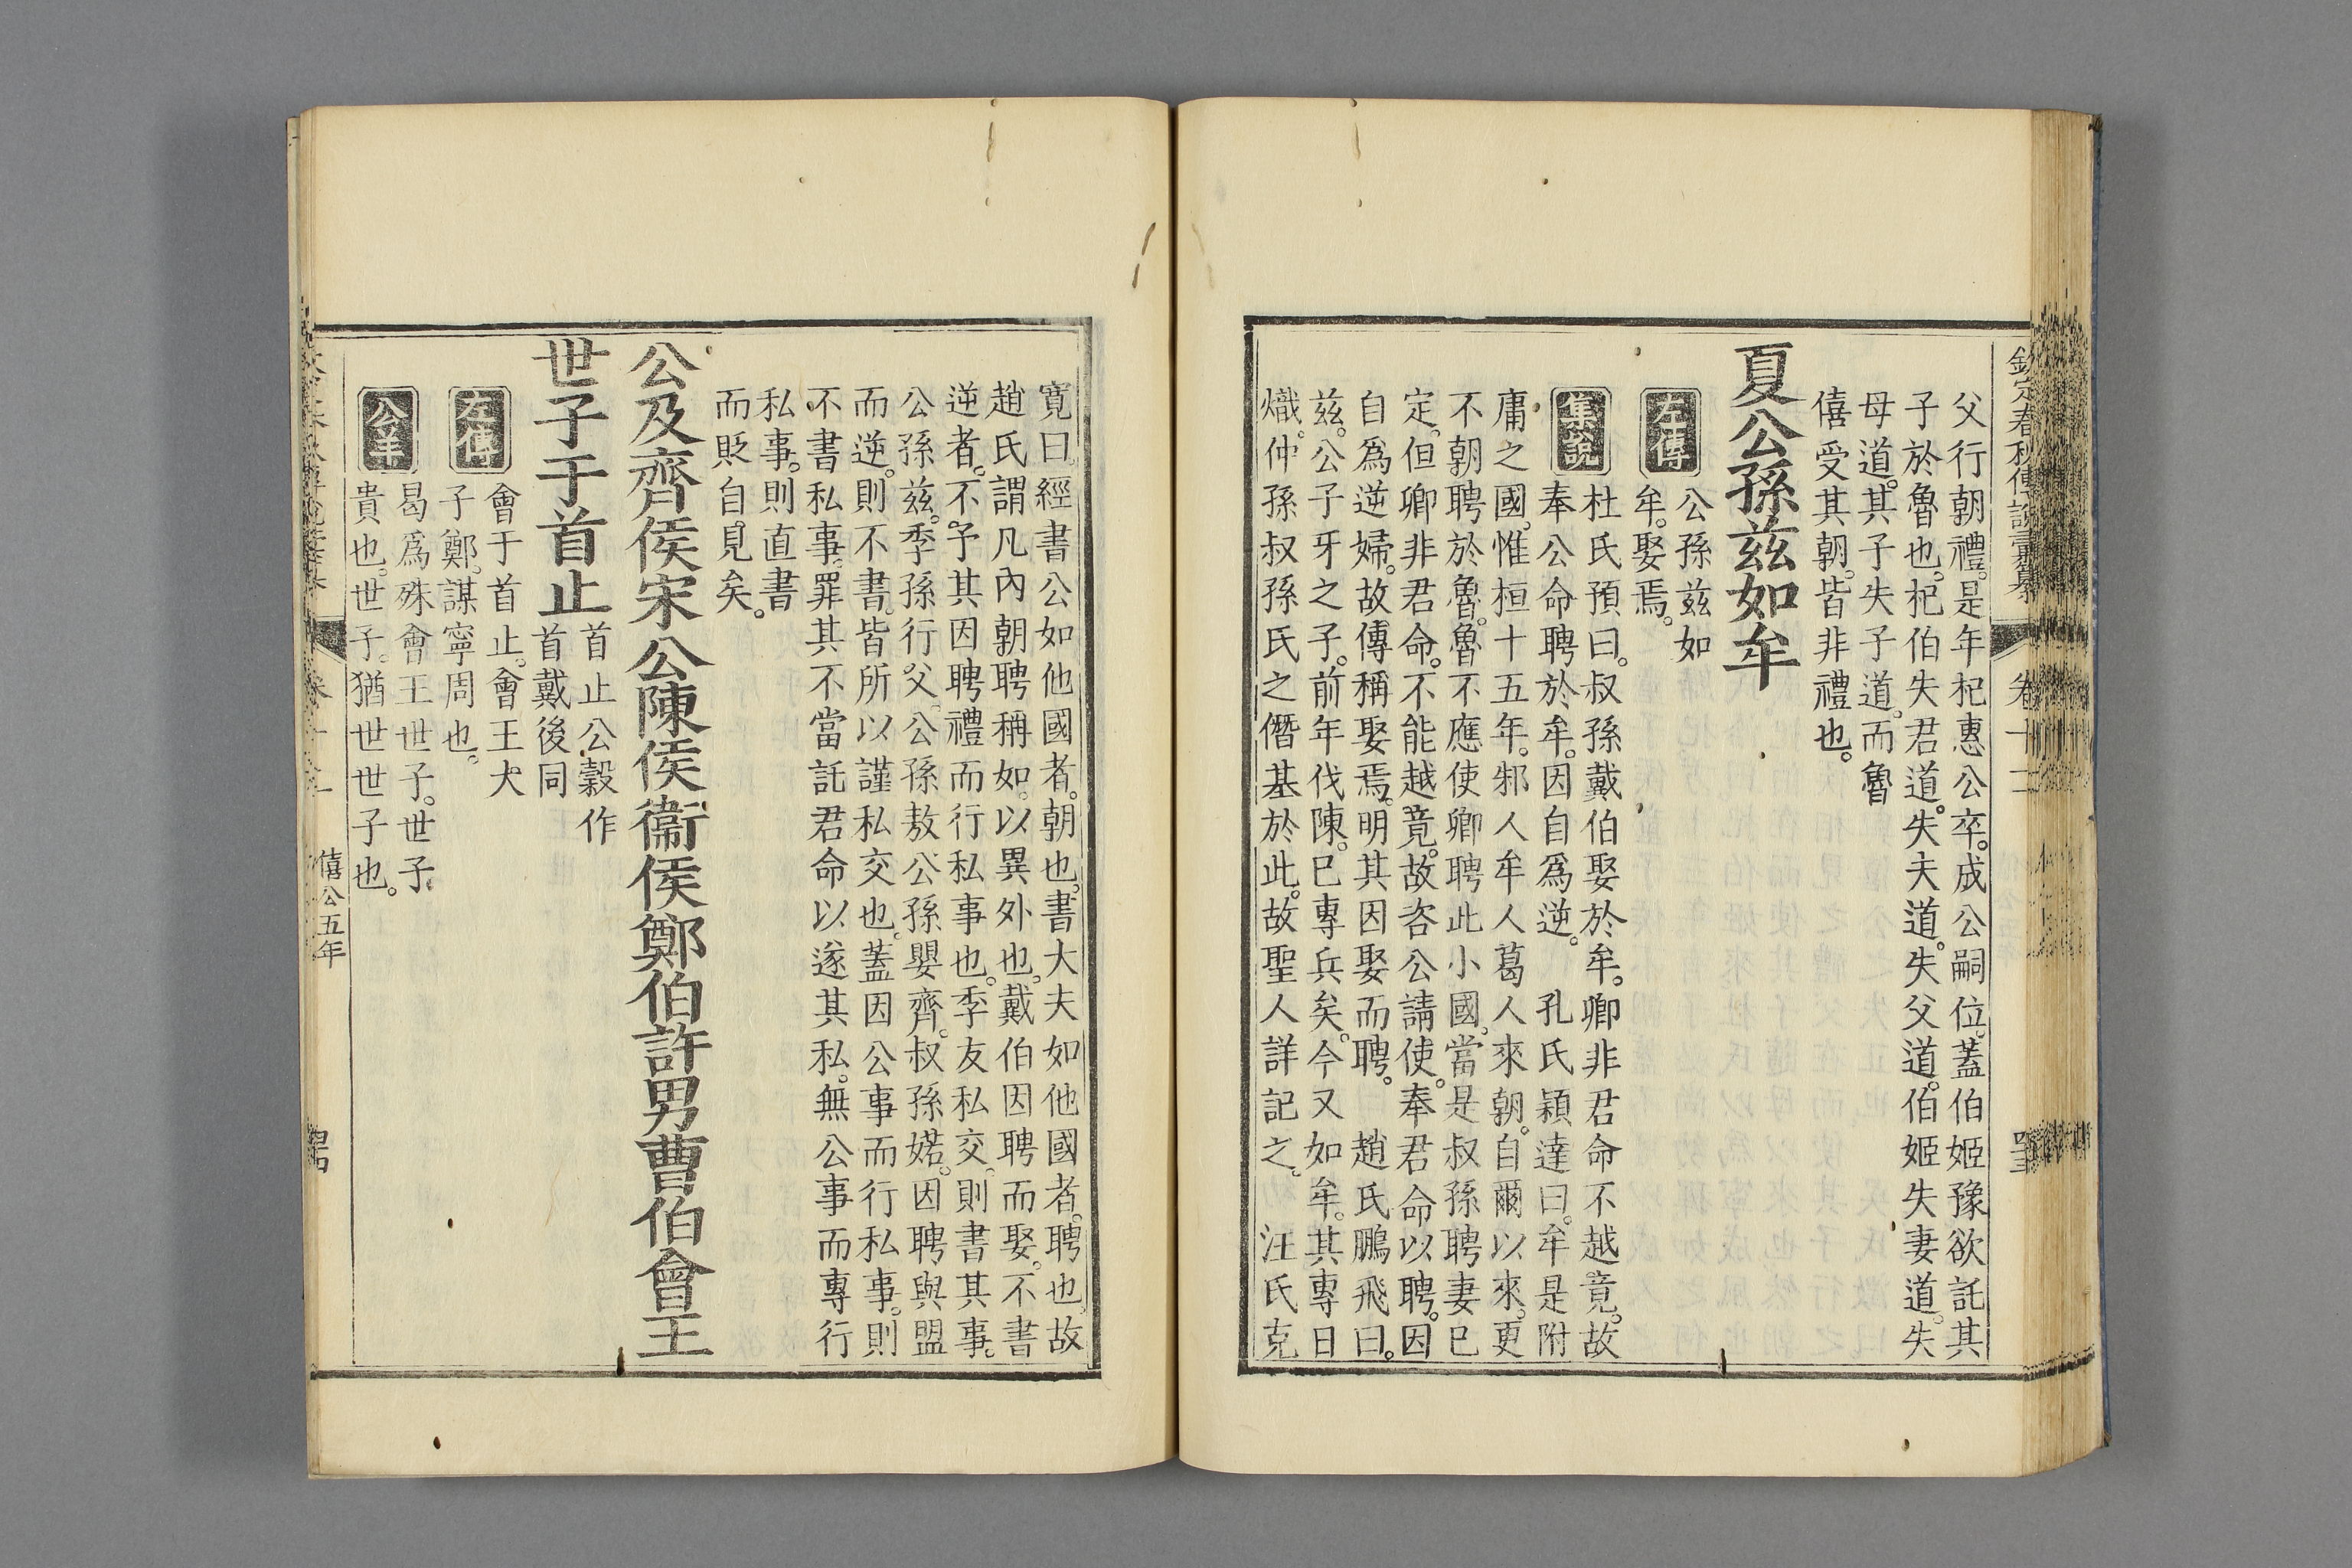 欽定春秋傳說彙纂 卷十二
父行朝禮。是年杞惠公卒。成公嗣位。蓋伯姬豫欲託其
子於魯也。杞伯失君道。失夫道。失父道。伯姬失妻道。失
母道。其子失子道。而魯
僖受其朝。皆非禮也。
夏公孫茲如牟
左傳
公孫茲如
牟。娶焉。
集說
杜氏預曰。叔孫戴伯娶於牟。卿非君命不越竟。故
奉公命聘於牟。因自爲逆。 孔氏穎達曰。牟是附
庸之國。惟桓十五年。邾人牟人葛人來朝。自爾以來。更
不朝聘於魯。魯不應使卿聘此小國。當是叔孫聘妻已
定。但卿非君命。不能越竟。故咨公請使。奉君命以聘。因
自爲逆婦。故傳稱娶焉。明其因娶而聘。 趙氏鵬飛曰。
茲。公子牙之子。前年伐陳。已專兵矣。今又如牟。其專日
熾。仲孫叔孫氏之僭基於此。故聖人詳記之。 汪氏克
寬曰。經書公如他國者。朝也。書大夫如他國者。聘也。故
趙氏謂凡內朝聘稱如。以異外也。戴伯因聘而娶。不書
逆者。不予其因聘禮而行私事也。季友私交。則書其事。
公孫茲。季孫行父。公孫敖公孫嬰齊。叔孫婼。因聘與盟
而逆。則不書。皆所以謹私交也。蓋因公事而行私事。則
不書私事。罪其不當託君命以遂其私。無公事而專行
私事。則直書
而貶自見矣。
公及齊侯宋公陳侯衞侯鄭伯許男曹伯會王
世子于首止
首止公穀作
首戴後同
左傳
會于首止。會王犬
子鄭。謀寧周也。
公羊
曷爲殊會王世子。世子
貴也。世子。猶世世子也。
僖公五年